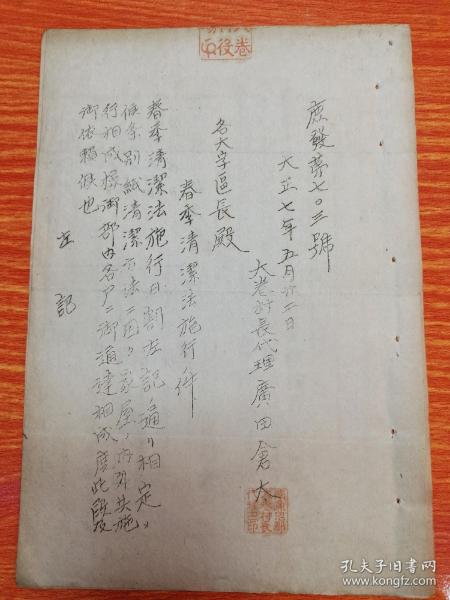 庶發第七〇三號
大正七年五月廿二日
大卷村長代理廣田倉太
各大字區長殿
春季清潔法施行ノ件
春季清潔法施行日割左記ノ通リ相定メ
候条別紙清潔方法ニ因リ家屋ノ内外共施
行相成様御部内各戸ニ御通達相成度此段及
御依賴候也
左記
孔夫子旧书网
www.kongfz.com